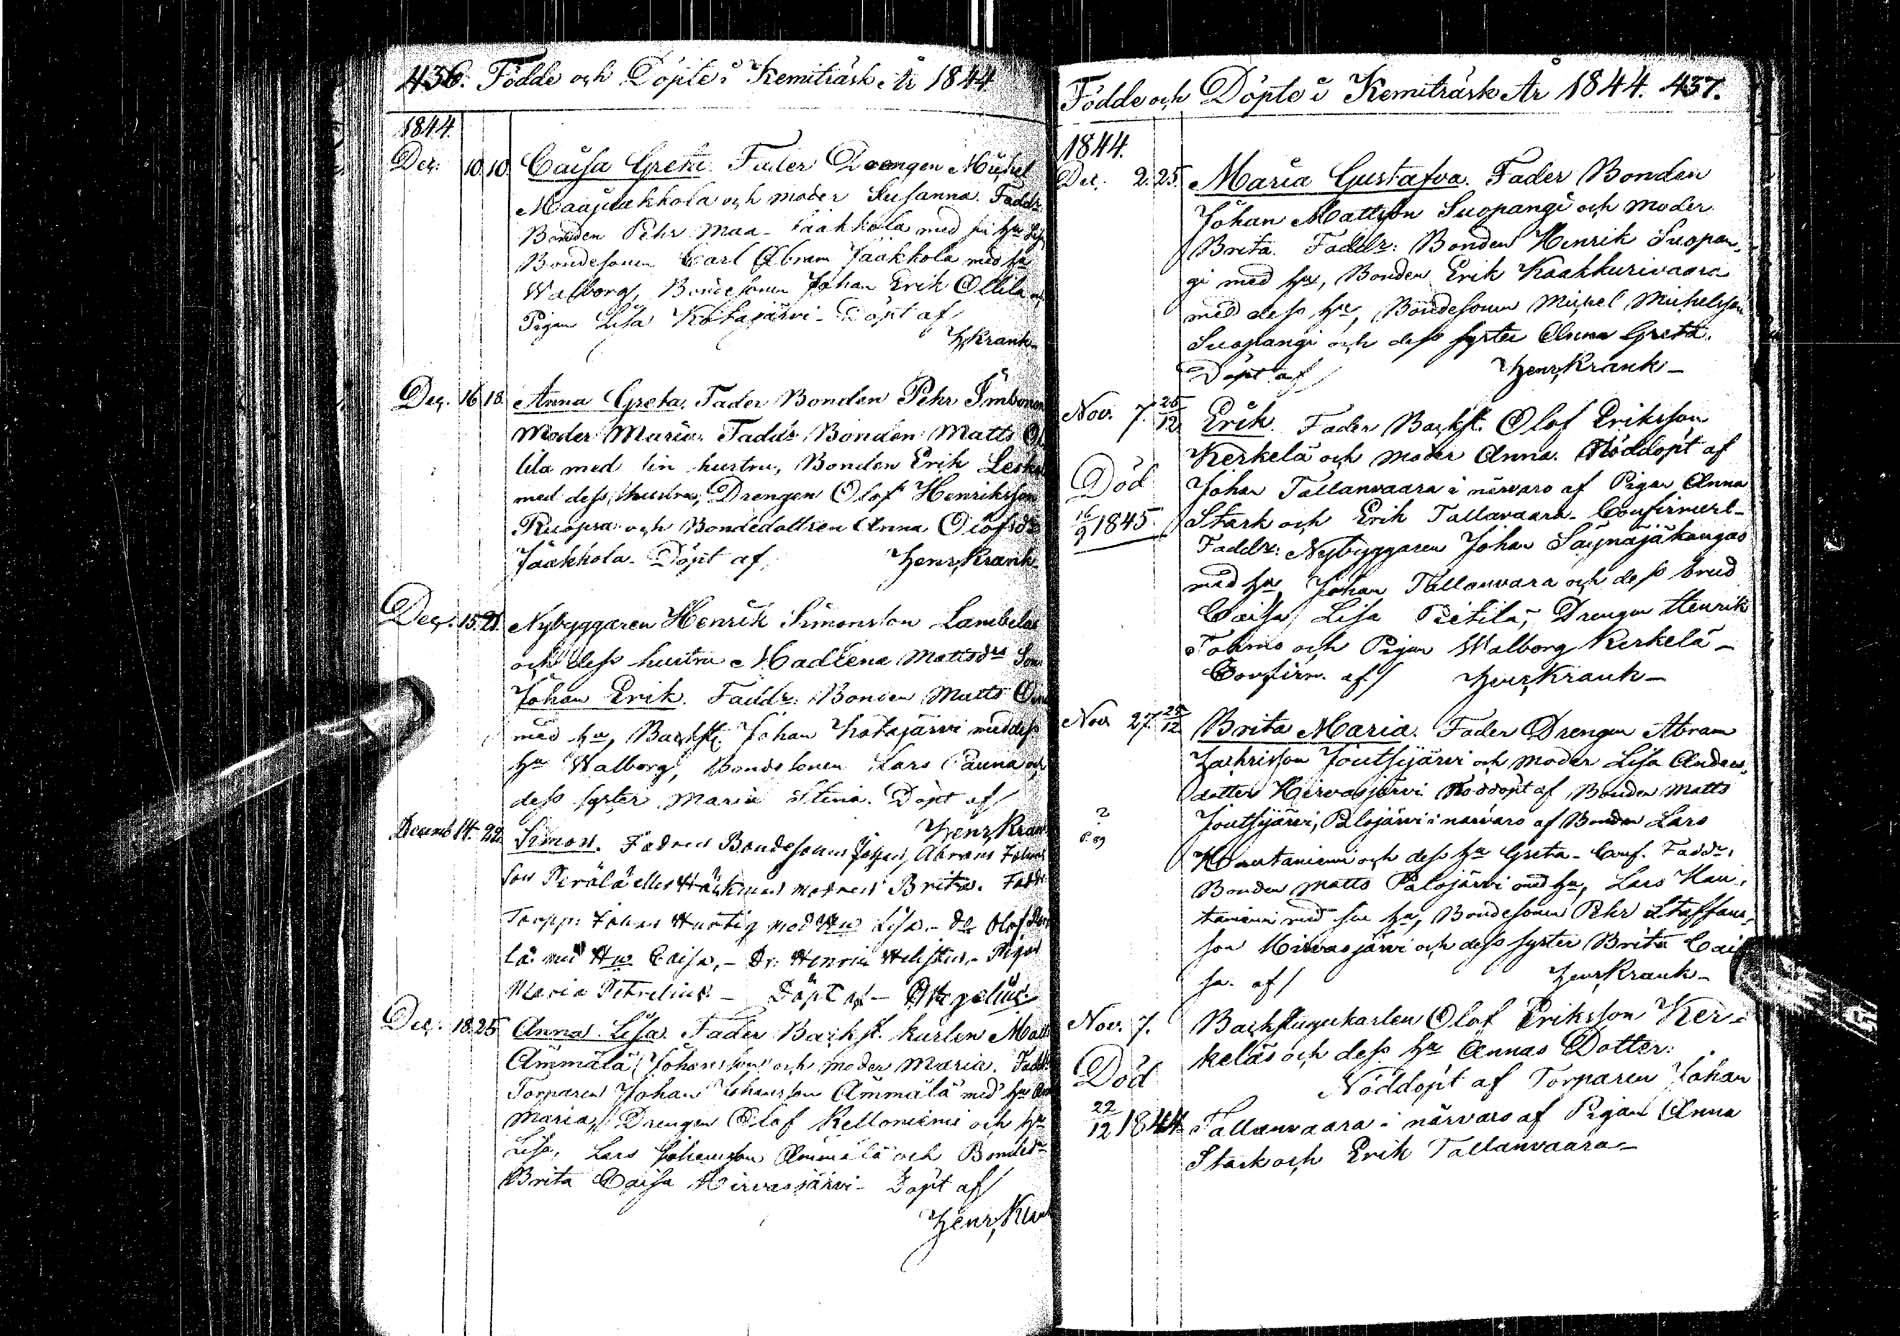 436. Födde och Döpte i Kemiträsk År 1844
1844.
Dec. 10. 10. Caisa Greta. Fader Drengen Michel
Maajaakkola och moder Susanna. Faddr:
Bonden Pehr Maa-Jaakkola med sin hu
Bondesonen Carl Abram Jaakkola med hu
Walborg, Bondesonen Johan Erik Ollila
Pigan Lisa Kotajärvi. Döpt af
Krank
Dec. 16 18. Anna Greta. Fader Bonden Pehr Imbonen
Moder Maria. Faddr: Bonden Matts Ol
lila med sin hustru, Bonden Erik
med dess hustru, Drengen Olof Henriksson
Ruopsa och Bondedottren Anna Olofsdr
Jaakkola. Döpt af Henr. Krank.
Dec. 15. 21. Nybyggaren Henrik Simonsson Lambela
och dess hustru Madlena Mattsdr Son
Johan Erik. Faddr: Bonden Matts
med hu, Backst. Johan Kotajärvi med dess
hu Walborg, Bondesonen Lars Pauna och
dess syster Maria Stina. Döpt af
Henr. Krank
Decemb 14. 22. Simon. Fadren Bondesonen Abram
son Pirälä eller modren Brita. Faddr
Torpp: Johan Hurtig med Hu Lisa. Dr Olof
lä med Hu Caisa, Dr: Henric Pigan
Maria Petrelius. Döpt af
Dec. 18. 25. Anna Lisa. Fader Backst. karlen Matts
Ämmälä Johansson och moder Maria. Faddr:
Torparen Johan Johansson Ämmälä med hu
Maria, Drengen Olof Kelloniemi och hu
Lisa, Lars Johansson Ämmälä och Bondedr
Brita Caisa Hirvasjärvi. Döpt af
Henr. Krank
Födde och Döpte i Kemiträsk År 1844. 437.
1844.
Dec. 2. 25. Maria Gustafva. Fader Bonden
Johan Mattsson Suopangi och moder
Brita. Faddr: Bonden Henrik Suopan-
gi med hu, Bonden Erik Kaakkurivaara
med dess hu, Bondesonen Michel Michelsson
Suopangi och dess syster Anna Greta.
Döpt af Henr. Krank
Nov. 7. 25/12 Erik. Fader Backst. Olof Eriksson
Kerkelä och moder Anna. Nöddöpt af
Död Johan Tallanvaara i närvaro af Pigan Anna
16/2 1845. Stark och Erik Tallavaara. Confirmerl-
Faddr: Nybyggaren Johan Säynäjäkangas
med hu, Johan Tallanvara och dess brud
Caisa Lisa Pietilä, Drengen Henrik
Tohmo och Pigan Walborg Kerkelä
Confirm. af Henr. Krank
Nov. 27. 25/12 Brita Maria. Fader Drengen Abram
Zachrisson Joutsijärvi och moder Lisa Anders-
dotter Hirvasjärvi Nöddöpt af Bonden Matts
? Joutsijärvi, Palojärvi i närvaro af Bonden Lars
Hautaniemi och dess hu Greta. Conf. Faddr:
Bonden Matts Palojärvi med hu, Lars Hau-
taniemi med sin hu, Bondesonen Pehr Staffans-
son Hirvasjärvi och dess syster Brita Cai
sa. af Henr. Krank
Nov. 7. Backstugukarlen Olof Eriksson Ker-
keläs och dess hu Annas Dotter:
Död Nöddöpt af Torparen Johan
22/12 1844 Tallanvaara i närvaro af Pigan Anna
Stark och Erik Tallanvaara